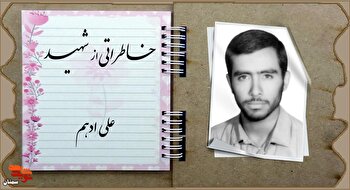 خاطراتی از شهید
علی ادهم
سمنان